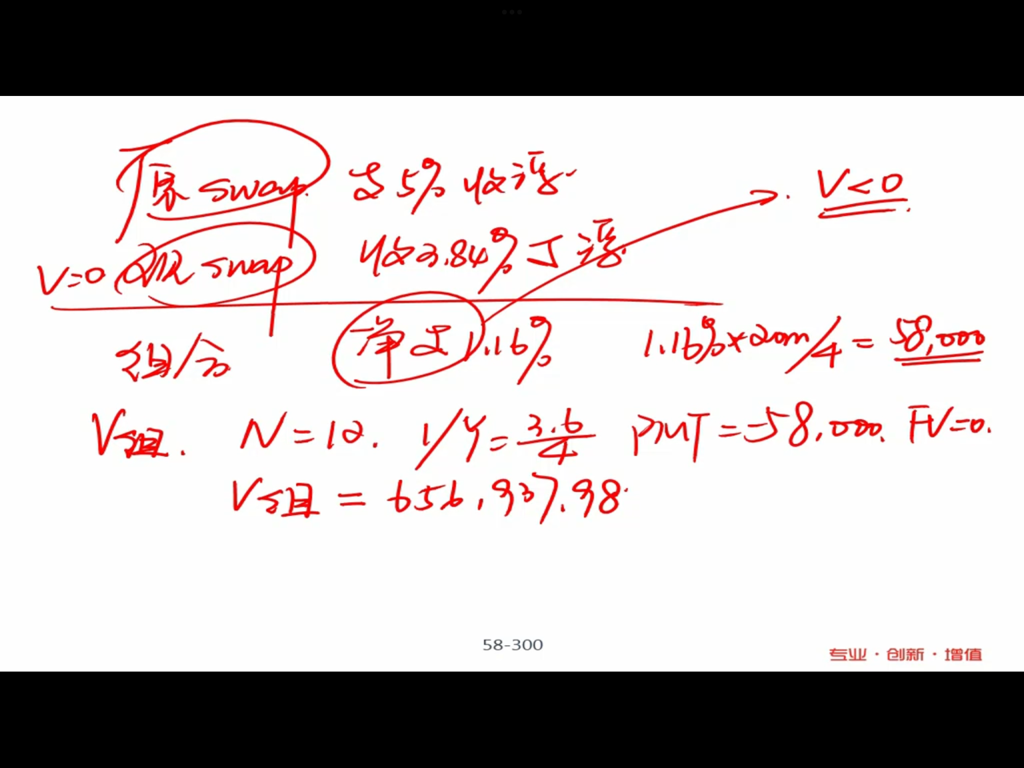 原 swap 支5% 收浮. V<0
V=0 现 swap 收3.84% 丁 浮
组合 净支1.16% 1.16%×20m/4 = 58,000
V组. N=12. I/Y=3.6/4 PMT=-58,000. FV=0.
V组 = 656,937.98
58-300
专业·创新·增值